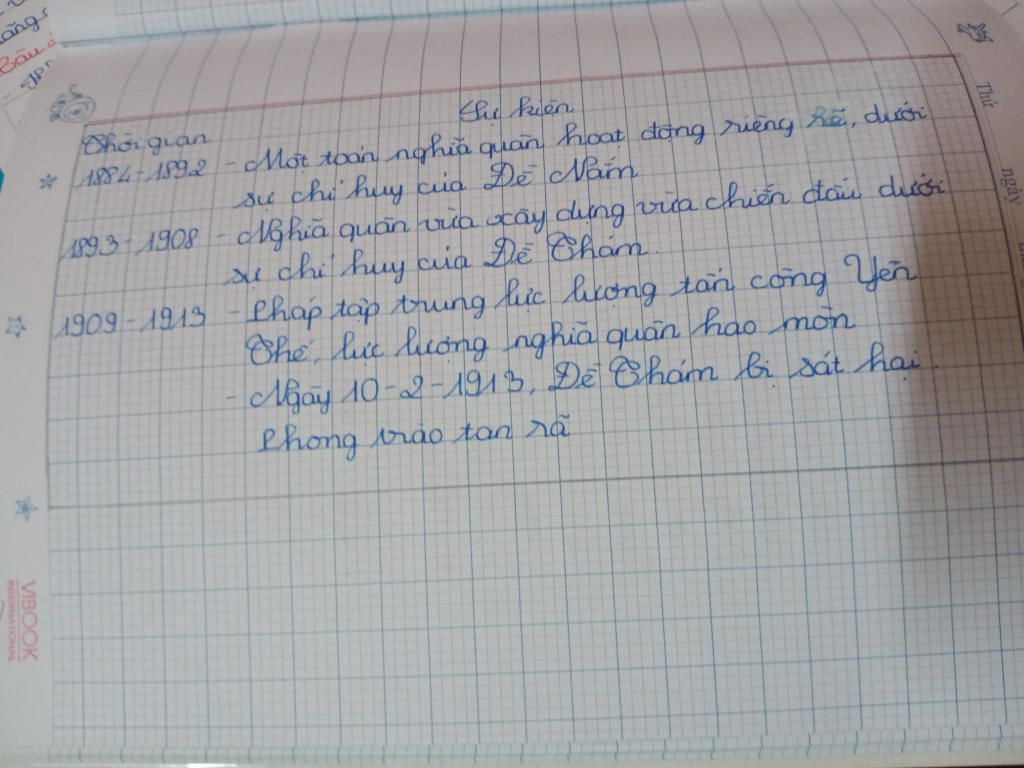 Sự kiện
Thời gian
1884-1892 - Một toán nghĩa quân hoạt động riêng rẽ, dưới
sự chỉ huy của Đề Nắm
1893-1908 - Nghĩa quân vừa xây dựng vừa chiến đấu dưới
sự chỉ huy của Đề Thám.
1909-1913 - Pháp tập trung lực lượng tấn công Yên
Thế, lực lượng nghĩa quân hao mòn
- Ngày 10-2-1913, Đề Thám bị sát hại.
Phong trào tan rã
Thứ
ngày
VIBOOK
INTERNATIONAL